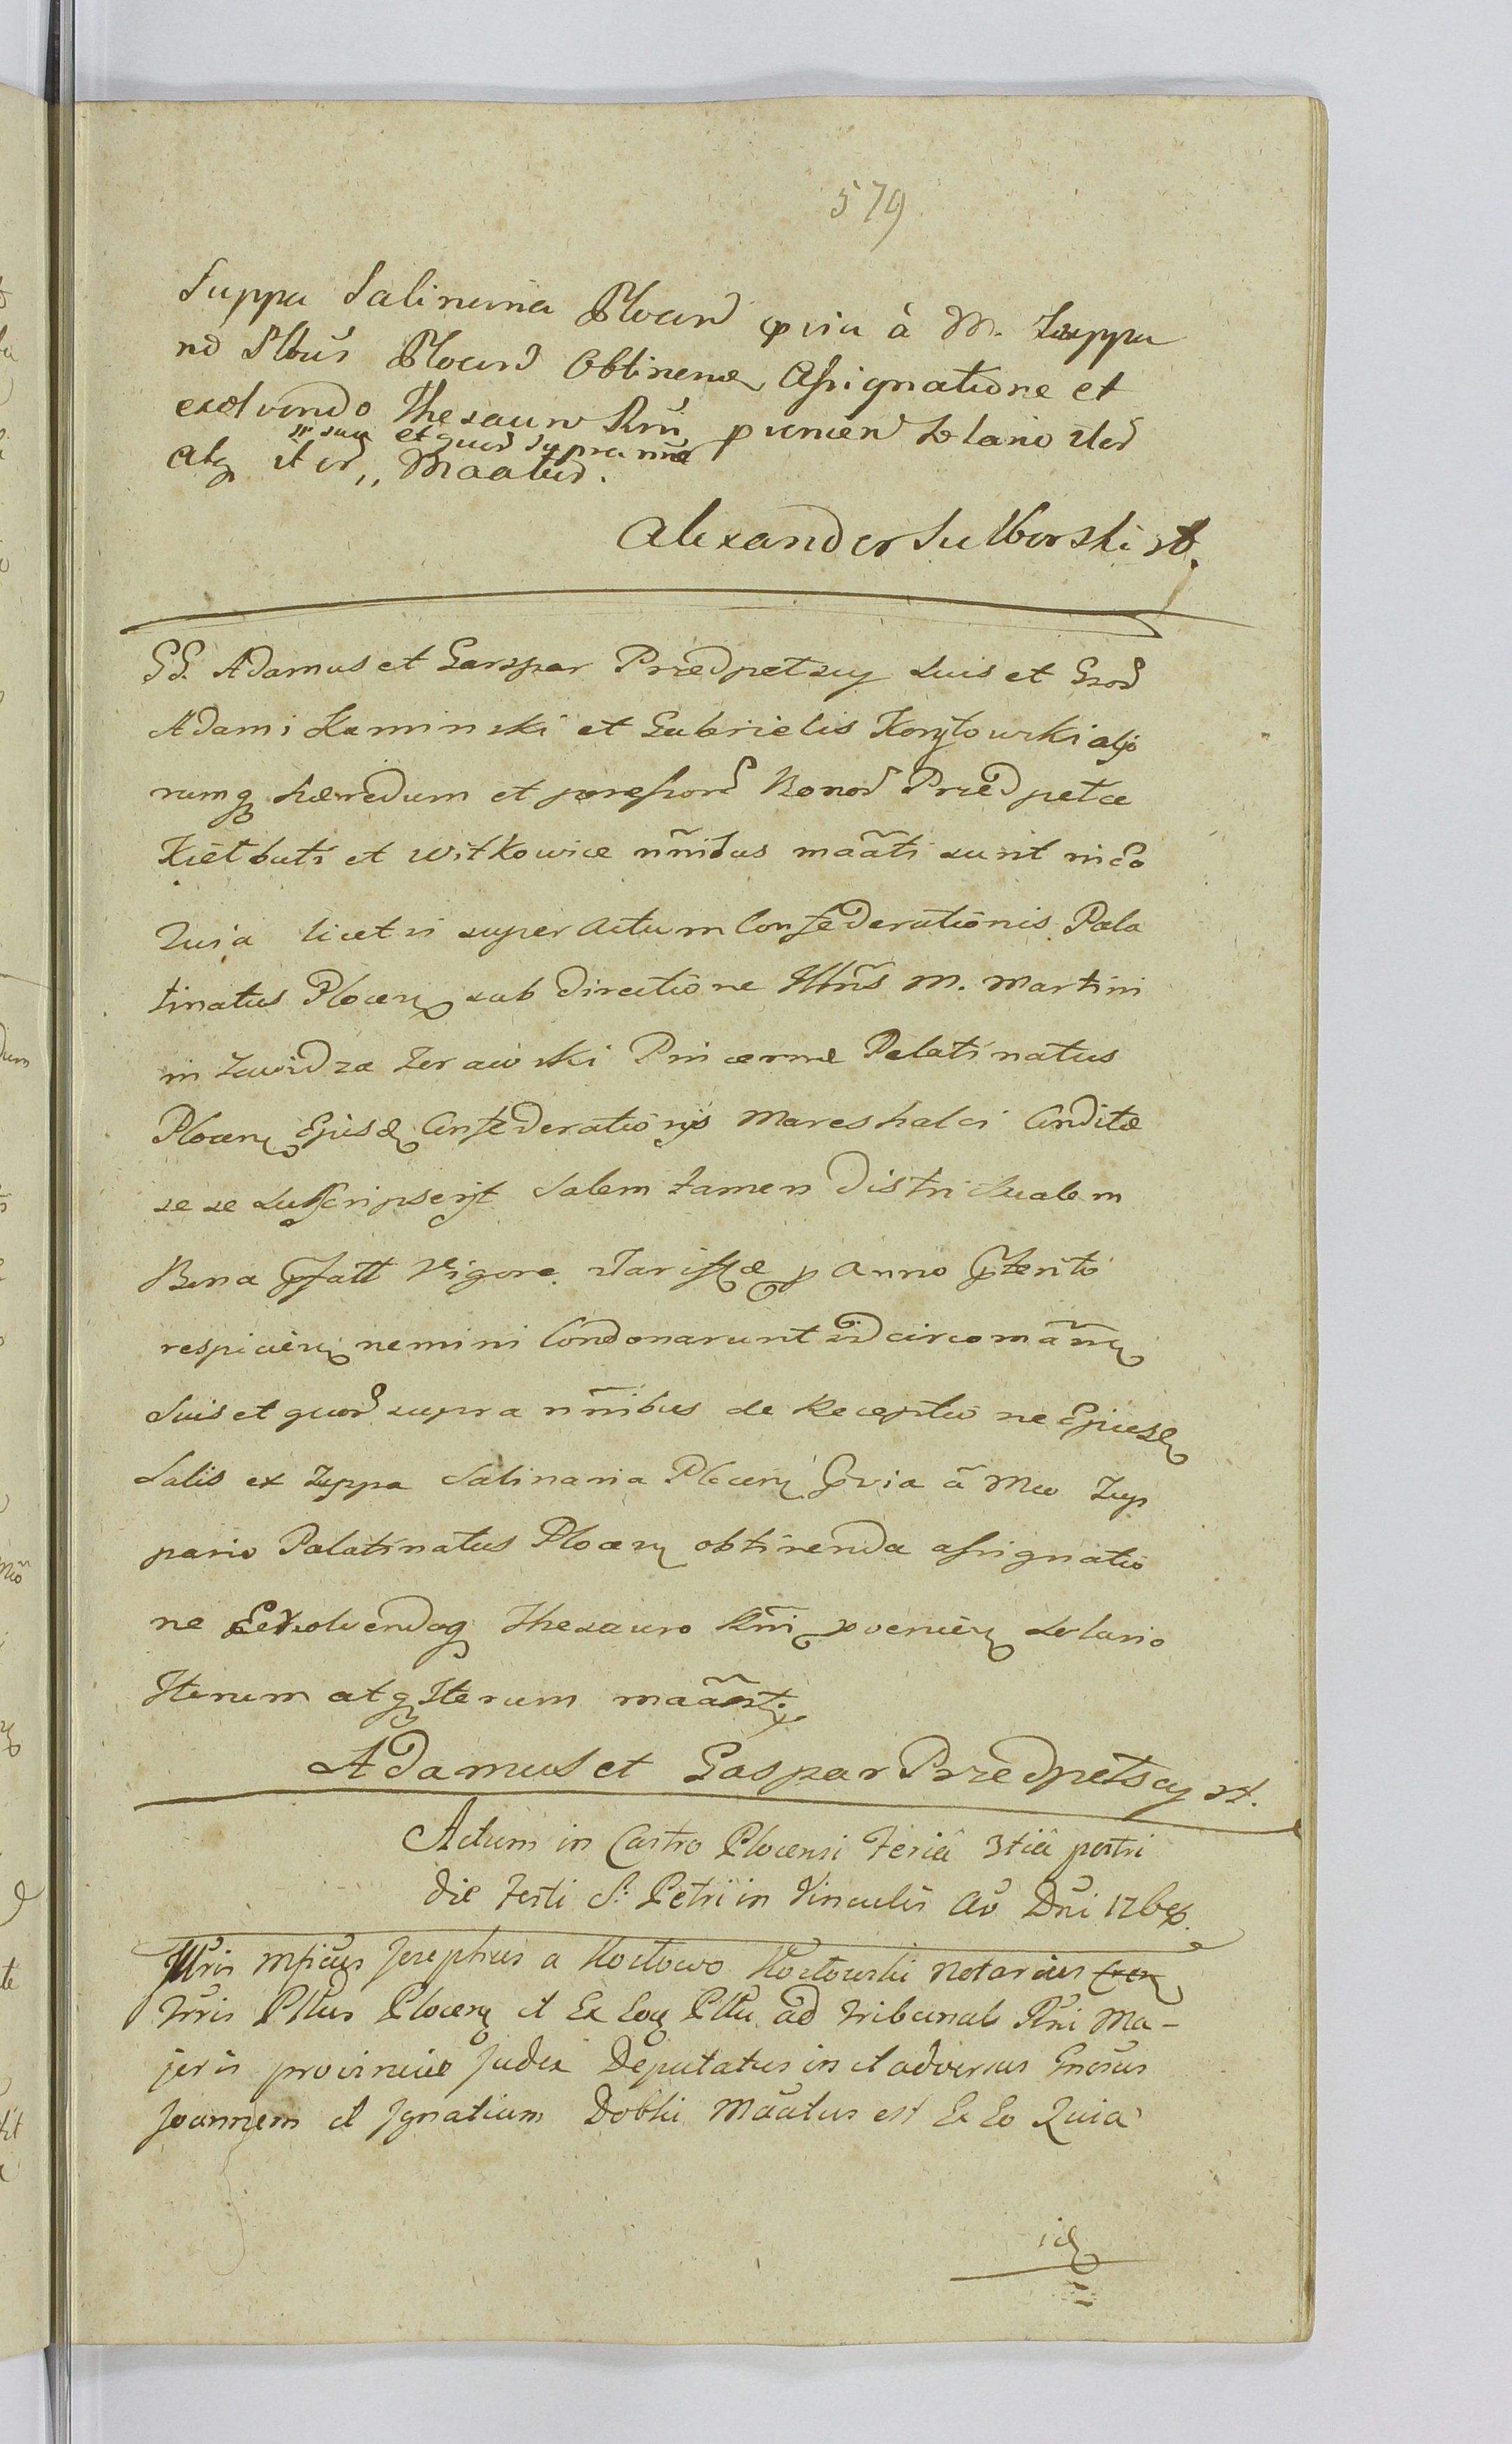 579
Suppa Salinaria Plocen pvia à M. Zuppa
rio Pltus Plocen Obtinena Assignatione et
exolvendo Thesauro Rni pvenien Solario Iter
se suis et quor supra nne
atq iter,, Maatur.
Alexander Sulborski st.
GG. Adamus et Gaspar Przedpełscy suis et Gnor
Adami Kaminski et Gabrielis Korytowski alijo
rumq hæredum et possessorũ Bonorũ Przedpełce
Kiełbuti et Witkowice nñibus maãti sunt in eo
Quia licet si super actum Confederationis Pala
tinatus Plocen sub directione Mñs M. Martini
in Zawidza Zerawski Pincernæ Palatinatus
Plocen Ejusd Confederationis Mareshalci Conditæ
se se subscripserjt Salem tamen Districtualem
Bona pfatt Vigore Tariffæ p anno pterito
respicien nemini Condonarunt idcirco mãñ
suis et quor supra nñibus de Receptio ne Ejusd
Salis ex Zuppa Salinaria Plocen pvia ã Mco Zup
pario Palatinatus Plocen obtinenda assignatio
ne Exolvendoq Thesauro Rñi pvenien Solario
Iterum atq Iterum maãnt.
Adamus et Gaspar Przedpełscy st.
Actum in Castro Plocensi Feriâ 3tiâ postri
die Festi S: Petri in Vinculis Aõ Dni 176
Mfícus Josephus a Kozłowo Kozłowski Notarius
Trris Pltus Plocen et Ex Eoq Pltu ad Tribunal Rni Ma-
joris provinciæ Judex Deputatus in et adversus Gnosus
Joannem et Ignatium Dobski Maatus est Ex Eo Quia
id